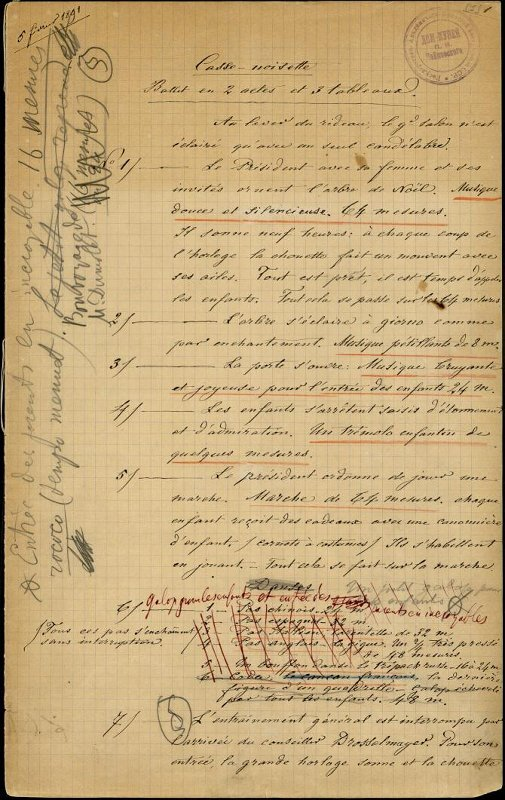 5 février 1891
1
Casse-noisette
Ballet en 2 actes et 3 tableaux.
Au lever du rideau, le gd salon n'est
éclairé qu'avec un seul candélabre.
No 1/ — Le Président avec sa femme et ses
invités ornent l'arbre de Noël. Musique
douce et silencieuse. 64 mesures.
Il sonne neuf heures: à chaque coup de
l'horloge la chouette fait un mouvent avec
ses ailes. Tout est prêt, il est temps d'appeler
les enfants. Tout cela se passe sur les 64 mesures
2/ — L'arbre s'éclaire à giorno comme
par enchantement. Musique pétillante de 8 m.
3/ — La porte s'ouvre: Musique bruyante
et joyeuse pour l'entrée des enfants 24 m.
4/ — Les enfants s'arrêtent saisis d'étonnement
et d'admiration. Un trémolo enfantin de
quelques mesures.
5/ — Le président ordonne de jouer une
marche. Marche de 64 mesures. chaque
enfant reçoit des cadeaux avec une canonnière
d'enfant. / carnets à costumes / Ils s'habillent
en jouant. — Tout cela se fait sur la marche
Danses
6/ Galop pour les enfants et entrée des parents en incroyables
1 — Les chinois. 24 m
Les espagnols. 32 m.
/ Tous ces pas s'enchaînent
sans interruption. /
de 32 m.
Les anglais. La gigue. 2/4 très pressé
de 48 mesures.
5 — Un bouffon danse le tripack russe
le cancan français, la dernière
figure d'un quadrille — Galop
par tous les enfants. 48 m.
7/ — L'entraînement général est interrompu par
l'arrivée du conseiller Drosselmayer. Pour son
entrée, la grande horloge sonne et la chouette
Entrée des parents en incroyable. 16 mesures
rococo (tempo menuet)
5
5